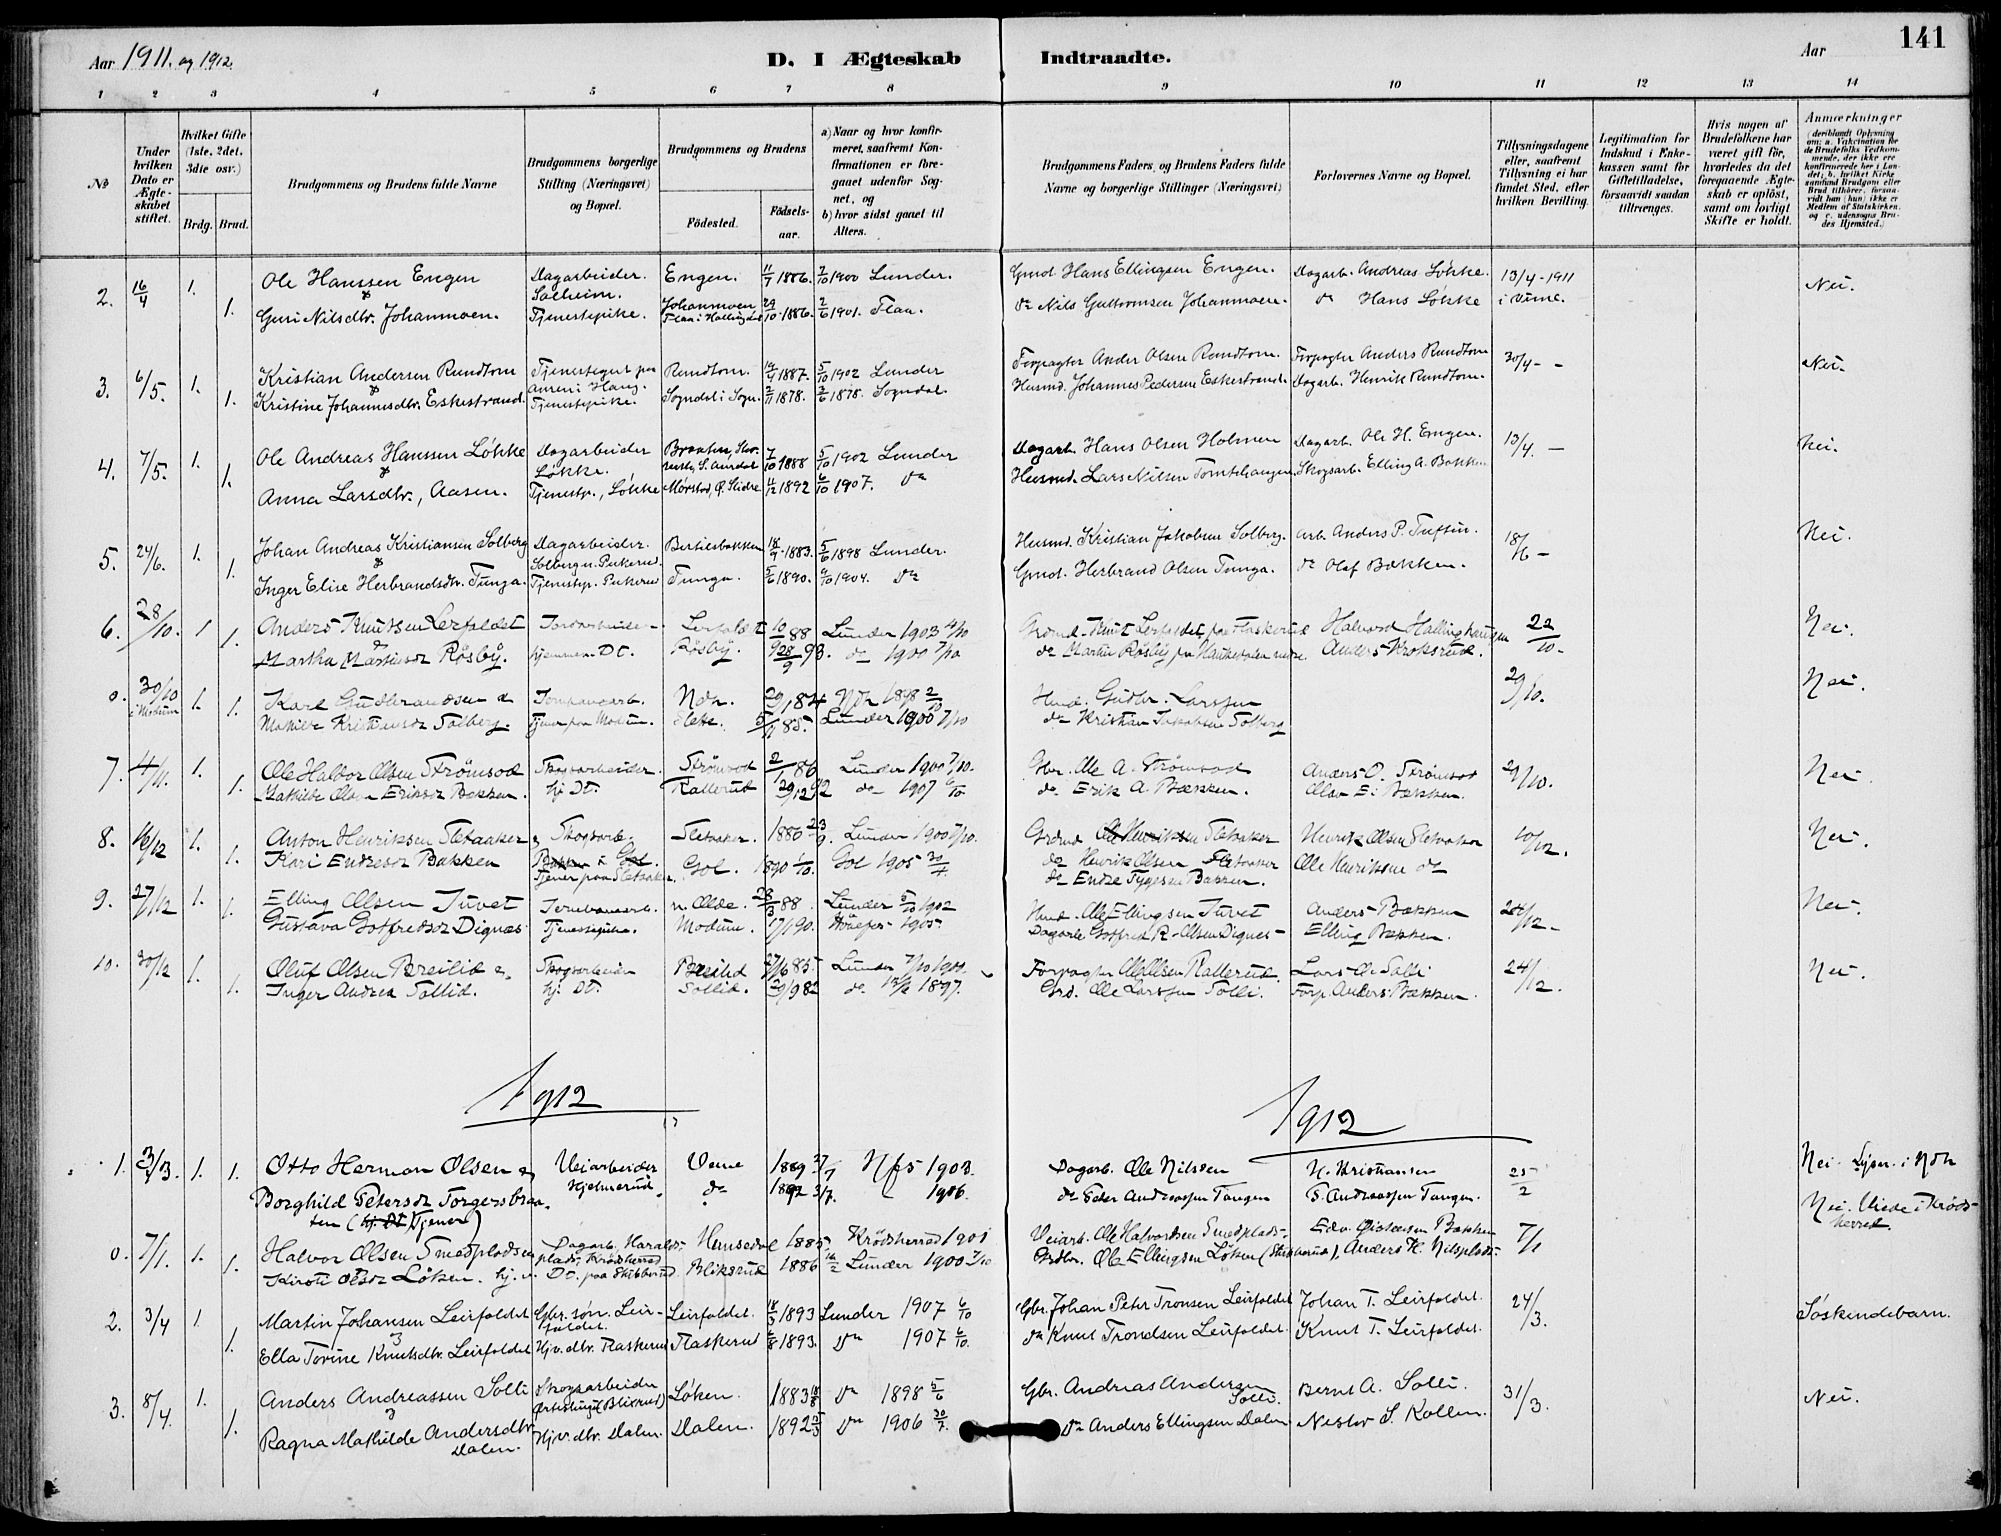 141
Aar 1911. og 1912.
D. I Ægteskab Indtraadte.
Aar
1 2 3 4 5 6 7 8 9 10 11 12 13 14
No
Under hvilken Dato er Ægteskabet stiftet.
Hvilket Gifte (1ste, 2det, 3die osv.)
Brdg. Brud.
Brudgommens og Brudens fulde Navne
Brudgommens borgerlige Stilling (Næringsvei) og Bopæl.
Brudgommens og Brudens
Fødested.
Fødselsaar.
a) Naar og hvor konfirmeret, saafremt Konfirmationen er foregaaet udenfor Sognet, og
b) hvor sidst gaaet til Alters.
Brudgommens Faders og Brudens Faders fulde Navne og borgerlige Stillinger (Næringsvei)
Forlovernes Navne og Bopæl.
Tillysningsdagene eller, saafremt Tillysning ei har fundet Sted, efter hvilken Bevilling.
Legitimation for Indskud i Enkekassen samt for Giftetilladelse, forsaavidt saadan tiltrænges.
Hvis nogen af Brudefolkene har været gift før, hvorledes da det foregaaende Ægteskab er opløst, samt om lovligt Skifte er holdt.
Anmærkninger
(deriblandt Oplysning om: a. Vakcination for de Brudefolks Vedkommende, der ikke ere konfirmerede her i Landet; b. hvilket Kirkesamfund Brudgom eller Brud tilhører, forsaavidt han (hun) ikke er Medlem af Statskirken, og c. udensogns Brudes Hjemsted.)
2. 16/4 1. Ole Hanssen Engen Dagarbeider. Engen. 11/7 1886. 2/10 1900 Lunder. Gmd. Hans Ellingsen Engen. Dagarb. Andreas Løkke. 13/4-1911 Nei.
& Solheim.
1. Guri Nilsdtr. Johannmoen. Tjenestepike. Johanmoen Flaa i Hallingdal 29/10 1886. 2/6 1901. Flaa. do Nils Guttormsen Johanmoen. do Hans Løkke i Vime.
3. 6/5. 1. Kristian Andersen Rundtom Tjenestegut Rundtom. 14/4 1887. 5/10 1902 Lunder Forpagter Ander Olsen Rundtom. Forpagter Anders Rundtom 30/4 - - Nei.
1. Kristine Johannesdtr. Eskestrand. Tjenestepike. Sogndal i Sogn. 2/11 1878. 2/6 1878. Sogndal. Husmd. Johannes Pedersen Eskestrand. Dagarb. Henrik Rundtom.
4. 7/5. 1. Ole Andreas Hanssen Løkke Dagarbeider 7/10 1888 5/10 1902 Lunder Dagarb. Hans Olsen Holmen Dagarb. Ole H. Engen. 13/4. - Nei.
& Løkke. S. Aurdal
1. Anna Larsdtr., Aasen. Tjenestp., Løkke Mørstad, Ø. Slidre 11/12 1892 6/10 1907. do Husmd. Lars Nilsen Tomtehaugen. Skogsarb. Elling A. Bakken
5. 24/6. 1. Johan Andreas Kristiansen Solberg Dagarbeider. Bertilsbakken 18/9 1883. 5/6 1898 Lunder. Husmd. Kristian Jakobsen Solberg. Arb. Anders P. Tuftin. 18/6 - Nei.
&
1. Inger Elise Herbrandsdtr. Tunga. Tjenstp. Tunga. 5/6 1890. 9/10 1904. do Gmd. Herbrand Olsen Tunga. do Olaf Bækken.
6. 28/10. 1 Anders Knudsen Lerfaldet Lerfaldet 10/9 88 Lunder 1903 4/10 Grdmd. Knut Lerfaldet paa Flaskerud Halvord Hallinghaugen 22/10. Nei.
1. Martha Martinsdr Røsby. hjemmev. Dt. Røsby. 28/9 93. do 1900 7/10 do Martin Røsby Anders Kroksrud.
0. 30/10 i Modum 1. 1. Karl Gudbrandsen & Ndr. 29/1 84 Ndr 1898 2/10 Husmd. Gudbr. Larssen 29/10. Nei.
Mathilde Kristiansdr Solberg. Tjener paa Modum. 5/11 85. Lunder 1900 7/10 do Kristian Jakobsen Solberg
7. 4/11. 1. Ole Halvor Olsen Strømsod Skogsarbeider. Strømsod 2/1 86 Lunder 1900 7/10. Gbr. Ole A. Strømsod Anders O. Strømsod 29/10. Nei.
1. Mathilde Olava Eriksdr Bækken. hj. Dt. Rallerud 29/12 92 do 1907 6/10 do Erik A. Bækken. Olav E. Bækken.
8. 16/12 1. Anton Henriksen Sletaaker & Skogsarb. Sletaaker. 1886 23/9. Lunder 1900 7/10. Grdmd Ole Henriksen Sletaaker Henrik Olsen Sletaaker 10/12. Nei.
1. Kari Endresdr Bakken Bakken i Gol. Gol. 1890 1/10. Gol 1905 30/4 do Henrik Olsen Sletaaker Ole Henriksen do
Tjener paa Sletaaker. do Endre Tygesen Bakken.
9. 27/12 1. Elling Olsen Juvet Jernbanearb. 28/3 88. Lunder 5/10 1902 Husmd. Ole Ellingsen Juvet Anders Bækken 24/12. Nei.
1. Gustava Gotfredsdr Dignæs Tjenestepike. Modum. 17/1 90. Hønefos 1905. Dagarb. Gotfred R. Olsen Dignes Elling Bækken.
10. 30/12 1. Oluf Olsen Breilid & Skogsarbeider Breilid 27/6 85. Lunder 7/10 1900. Forpagter Ole Olsen Rallerud Lars O. Solli 24/12. Nei.
1. Inger Andrea Sollid. hj. Dt. Sollid. 29/9 82 do 1897. Grd. Ole Larssen Solli. Forp. Anders Bækken.
1912 1912
1. 3/3. 1. 1. Otto Herman Olsen & Veiarbeider Veme 1889 27/7 Hfs 1903. Dagarb. Ole Nilssen N. Kristiansen 25/2 Nei. Lyser. i Ndr
Borghild Petersdr Torgersbraaten (hj. Dt. Tjener) Hjelmerud. do 1892 3/7. 1906. do Peder Andreassen Tangen T. Andreassen Tangen. Nei. Viede i Krødsherred.
0. 7/1. 1. Halvor Olsen Smedpladsen Dagarb. Haraldsplads, Krødsherred Hemsedal 1885 Krødsherred 1901 Veiarb. Ole Halvorsen Smedplads. Bækken 7/1
1. Kirsti Olsdr Løken. hj. v. Dt. paa Stibberud Bliksrud 1886 16/2 Lunder 1900 7/10 Grdbr. Ole Ellingsen Løken (Stibberud), Anders H. Nilsplads.
2. 3/4 1. Martin Johansen Leirfaldet Gbr. søn. Leirfaldet. Leirfaldet. 18/3 1893 Lunder 1907 6/10 Gbr. Johan Peter Tronsen Leirfaldet Johan T. Leirfaldet. 24/3. Søskendebarn.
&
1. Ella Torine Knutsdtr. Leirfaldet Hjv. dtr. Flaskerud Flaskerud 6/8 1893. do 1907 6/10. do Knut Trondsen Leirfaldet. Knut T. Leirfaldet.
3. 8/4. 1. Anders Andreassen Solli Skogsarbeider (Bliksrud) Løken. 1883 18/8 do 1898 5/6 Gbr. Andreas Andersen Solli. Bernt A. Solli. 31/3. Nei.
&
1. Ragna Mathilde Andersdtr. Dalen. Hjv. dtr. Dalen. Dalen. 1892 2/3 do 1906 30/7. do Anders Ellingsen Dalen Nestor S. Kollen.